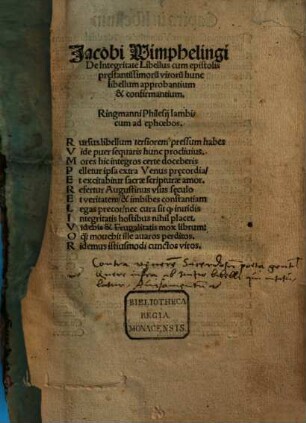 Jacobi Wimphelingi
De Integritate Libellus cum epistolis
prestantissimorū virorū hunc
libellum approbantium
& confirmantium.
Ringmanni Philesij Iambis
cum ad ephœbos.
R ursus libellum tersiorem pressum habes
V ide puer sequaris hunc procliuius.
M ores hic integros certe doceberis
P elletur ipsa extra Venus precordia
E t excitabitur sacræ scripturæ amor.
R efertur Augustinus vsus seculo
E t veritatem & imbibes constantiam
L egas precor nec cura sit inuidis
I ntegritatis hostibus nihil placet.
V idebis & Frugalitatis mox librum
O mouebit ille auaros perditos.
R idemus istiusmodi cunctos viros.
Contra
BIBLIOTHECA
REGIA
MONACENSIS.